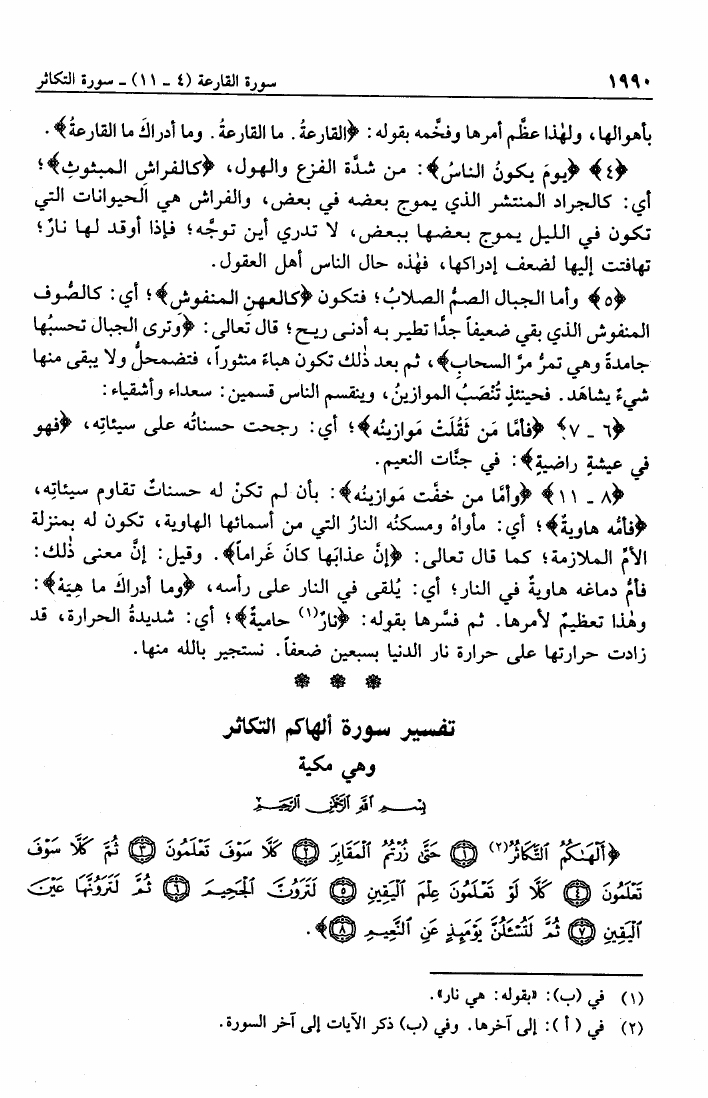 ١٩٩٠ سورة القارعة (٤ - ١١) - سورة التكاثر
بأهوالها، ولهٰذا عظَّم أمرها وفخَّمه بقوله: ﴿القارعةُ. ما القارعةُ. وما أدراكَ ما القارعةُ﴾.
﴿٤﴾ ﴿يومَ يكونُ الناسُ﴾: من شدَّة الفزع والهول، ﴿كالفراشِ المبثوثِ﴾؛
أي: كالجراد المنتشر الذي يموج بعضه في بعض، والفراش هي الحيوانات التي
تكون في الليل يموج بعضها ببعض، لا تدري أين توجَّه؛ فإذا أوقد لها نارٌ؛
تهافتت إليها لضعف إدراكها، فهٰذه حال الناس أهل العقول.
﴿٥﴾ وأما الجبال الصمُّ الصلابُ؛ فتكون ﴿كالعهنِ المنفوش﴾؛ أي: كالصُّوف
المنفوش الذي بقي ضعيفاً جدًّا تطير به أدنى ريح؛ قال تعالى: ﴿وترى الجبال تحسبُها
جامدةً وهي تمرُّ مرَّ السحابِ﴾، ثم بعد ذٰلك تكون هباءً منثوراً، فتضمحلُّ ولا يبقى منها
شيءٌ يشاهَد. فحينئذٍ تُنْصَبُ الموازينُ، وينقسم الناس قسمين: سعداء وأشقياء:
﴿٦ - ٧﴾ ﴿فأمَّا مَن ثَقُلَتْ مَوازينُه﴾؛ أي: رجحت حسناتُه على سيئاتِه، ﴿فهو
في عيشةٍ راضيةٍ﴾: في جنَّات النعيم.
﴿٨ - ١١﴾ ﴿وأمَّا من خفَّت مَوازينُه﴾: بأن لم تكنْ له حسناتٌ تقاوم سيئاتِه،
﴿فأمُّه هاويةٌ﴾؛ أي: مأواهُ ومسكنُه النارُ التي من أسمائها الهاوية، تكون له بمنزلة
الأمِّ الملازمة؛ كما قال تعالى: ﴿إنَّ عذابَها كانَ غَراماً﴾. وقيل: إنَّ معنى ذٰلك:
فأمُّ دماغه هاويةٌ في النار؛ أي: يُلقى في النار على رأسه، ﴿وما أدراكَ ما هِيَهْ﴾:
وهٰذا تعظيمٌ لأمرها. ثم فسَّرها بقوله: ﴿نارٌ(١) حاميةٌ﴾؛ أي: شديدةُ الحرارة، قد
زادت حرارتها على حرارة نار الدنيا بسبعين ضعفاً. نستجير بالله منها.
تفسير سورة ألهاكم التكاثر
وهي مكية
بِسْمِ ٱللَّهِ ٱلرَّحْمَٰنِ ٱلرَّحِيمِ
﴿أَلْهَىٰكُمُ ٱلتَّكَاثُرُ(٢) ١ حَتَّىٰ زُرْتُمُ ٱلْمَقَابِرَ ٢ كَلَّا سَوْفَ تَعْلَمُونَ ٣ ثُمَّ كَلَّا سَوْفَ
تَعْلَمُونَ ٤ كَلَّا لَوْ تَعْلَمُونَ عِلْمَ ٱلْيَقِينِ ٥ لَتَرَوُنَّ ٱلْجَحِيمَ ٦ ثُمَّ لَتَرَوُنَّهَا عَيْنَ
ٱلْيَقِينِ ٧ ثُمَّ لَتُسْـَٔلُنَّ يَوْمَئِذٍ عَنِ ٱلنَّعِيمِ ٨﴾.
(١) في (ب): «بقوله: هي نار».
(٢) في (أ): إلى آخرها. وفي (ب) ذكر الآيات إلى آخر السورة.